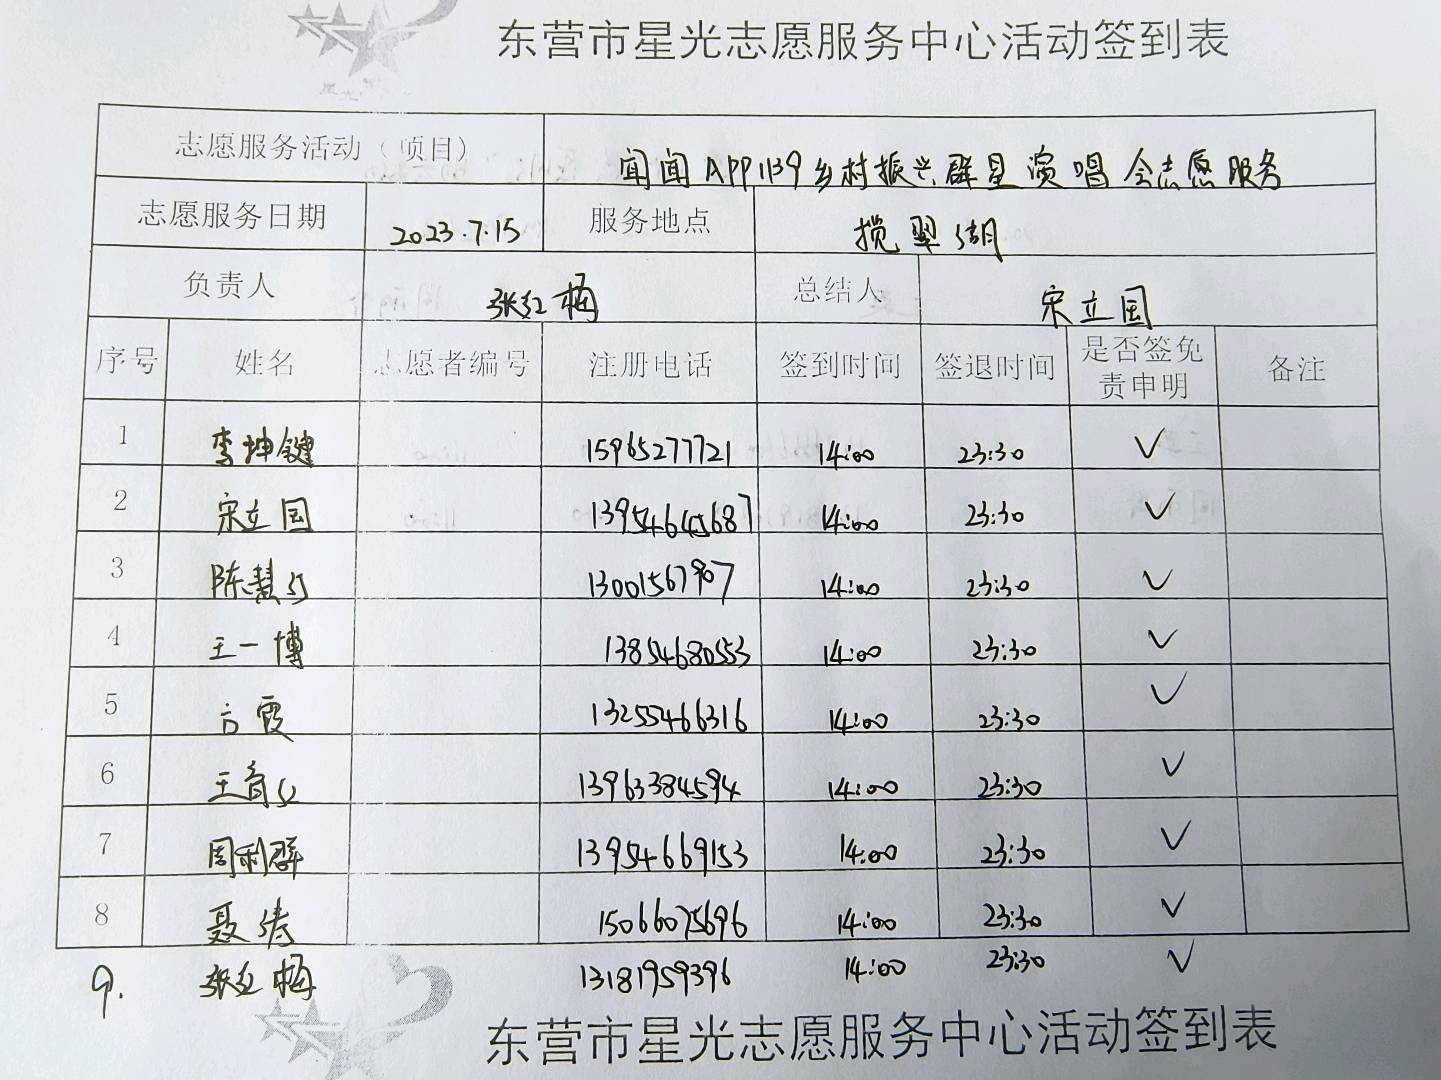 东营市星光志愿服务中心活动签到表
志愿服务活动（项目） 闻闻APP1139乡村振兴群星演唱会志愿服务
志愿服务日期 2023.7.15 服务地点 揽翠湖
负责人 张红梅 总结人 宋立国
序号 姓名 志愿者编号 注册电话 签到时间 签退时间 是否签免责申明 备注
1 李坤键 15965277721 14:00 23:30 ✓
2 宋立国 13954645687 14:00 23:30 ✓
3 陈慧 13001567907 14:00 23:30 ✓
4 王一博 13854680553 14:00 23:30 ✓
5 方霞 13255466316 14:00 23:30 ✓
6 王 13963384594 14:00 23:30 ✓
7 周利群 13954669153 14:00 23:30 ✓
8 聂涛 15066075696 14:00 23:30 ✓
9. 张红梅 13181959396 14:00 23:30 ✓
东营市星光志愿服务中心活动签到表